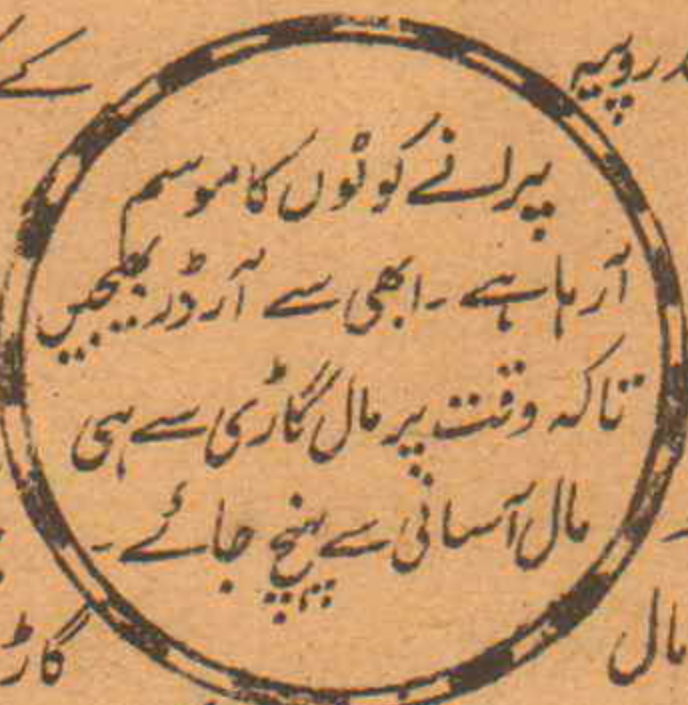 روپیہ
کے
پرانے کوٹوں کا موسم
آرہا ہے ۔ ابھی سے آرڈر بھیجیں
تاکہ وقت پر مال گاڑی سے ہی
مال آسانی سے پہنچ جائے ۔
مال